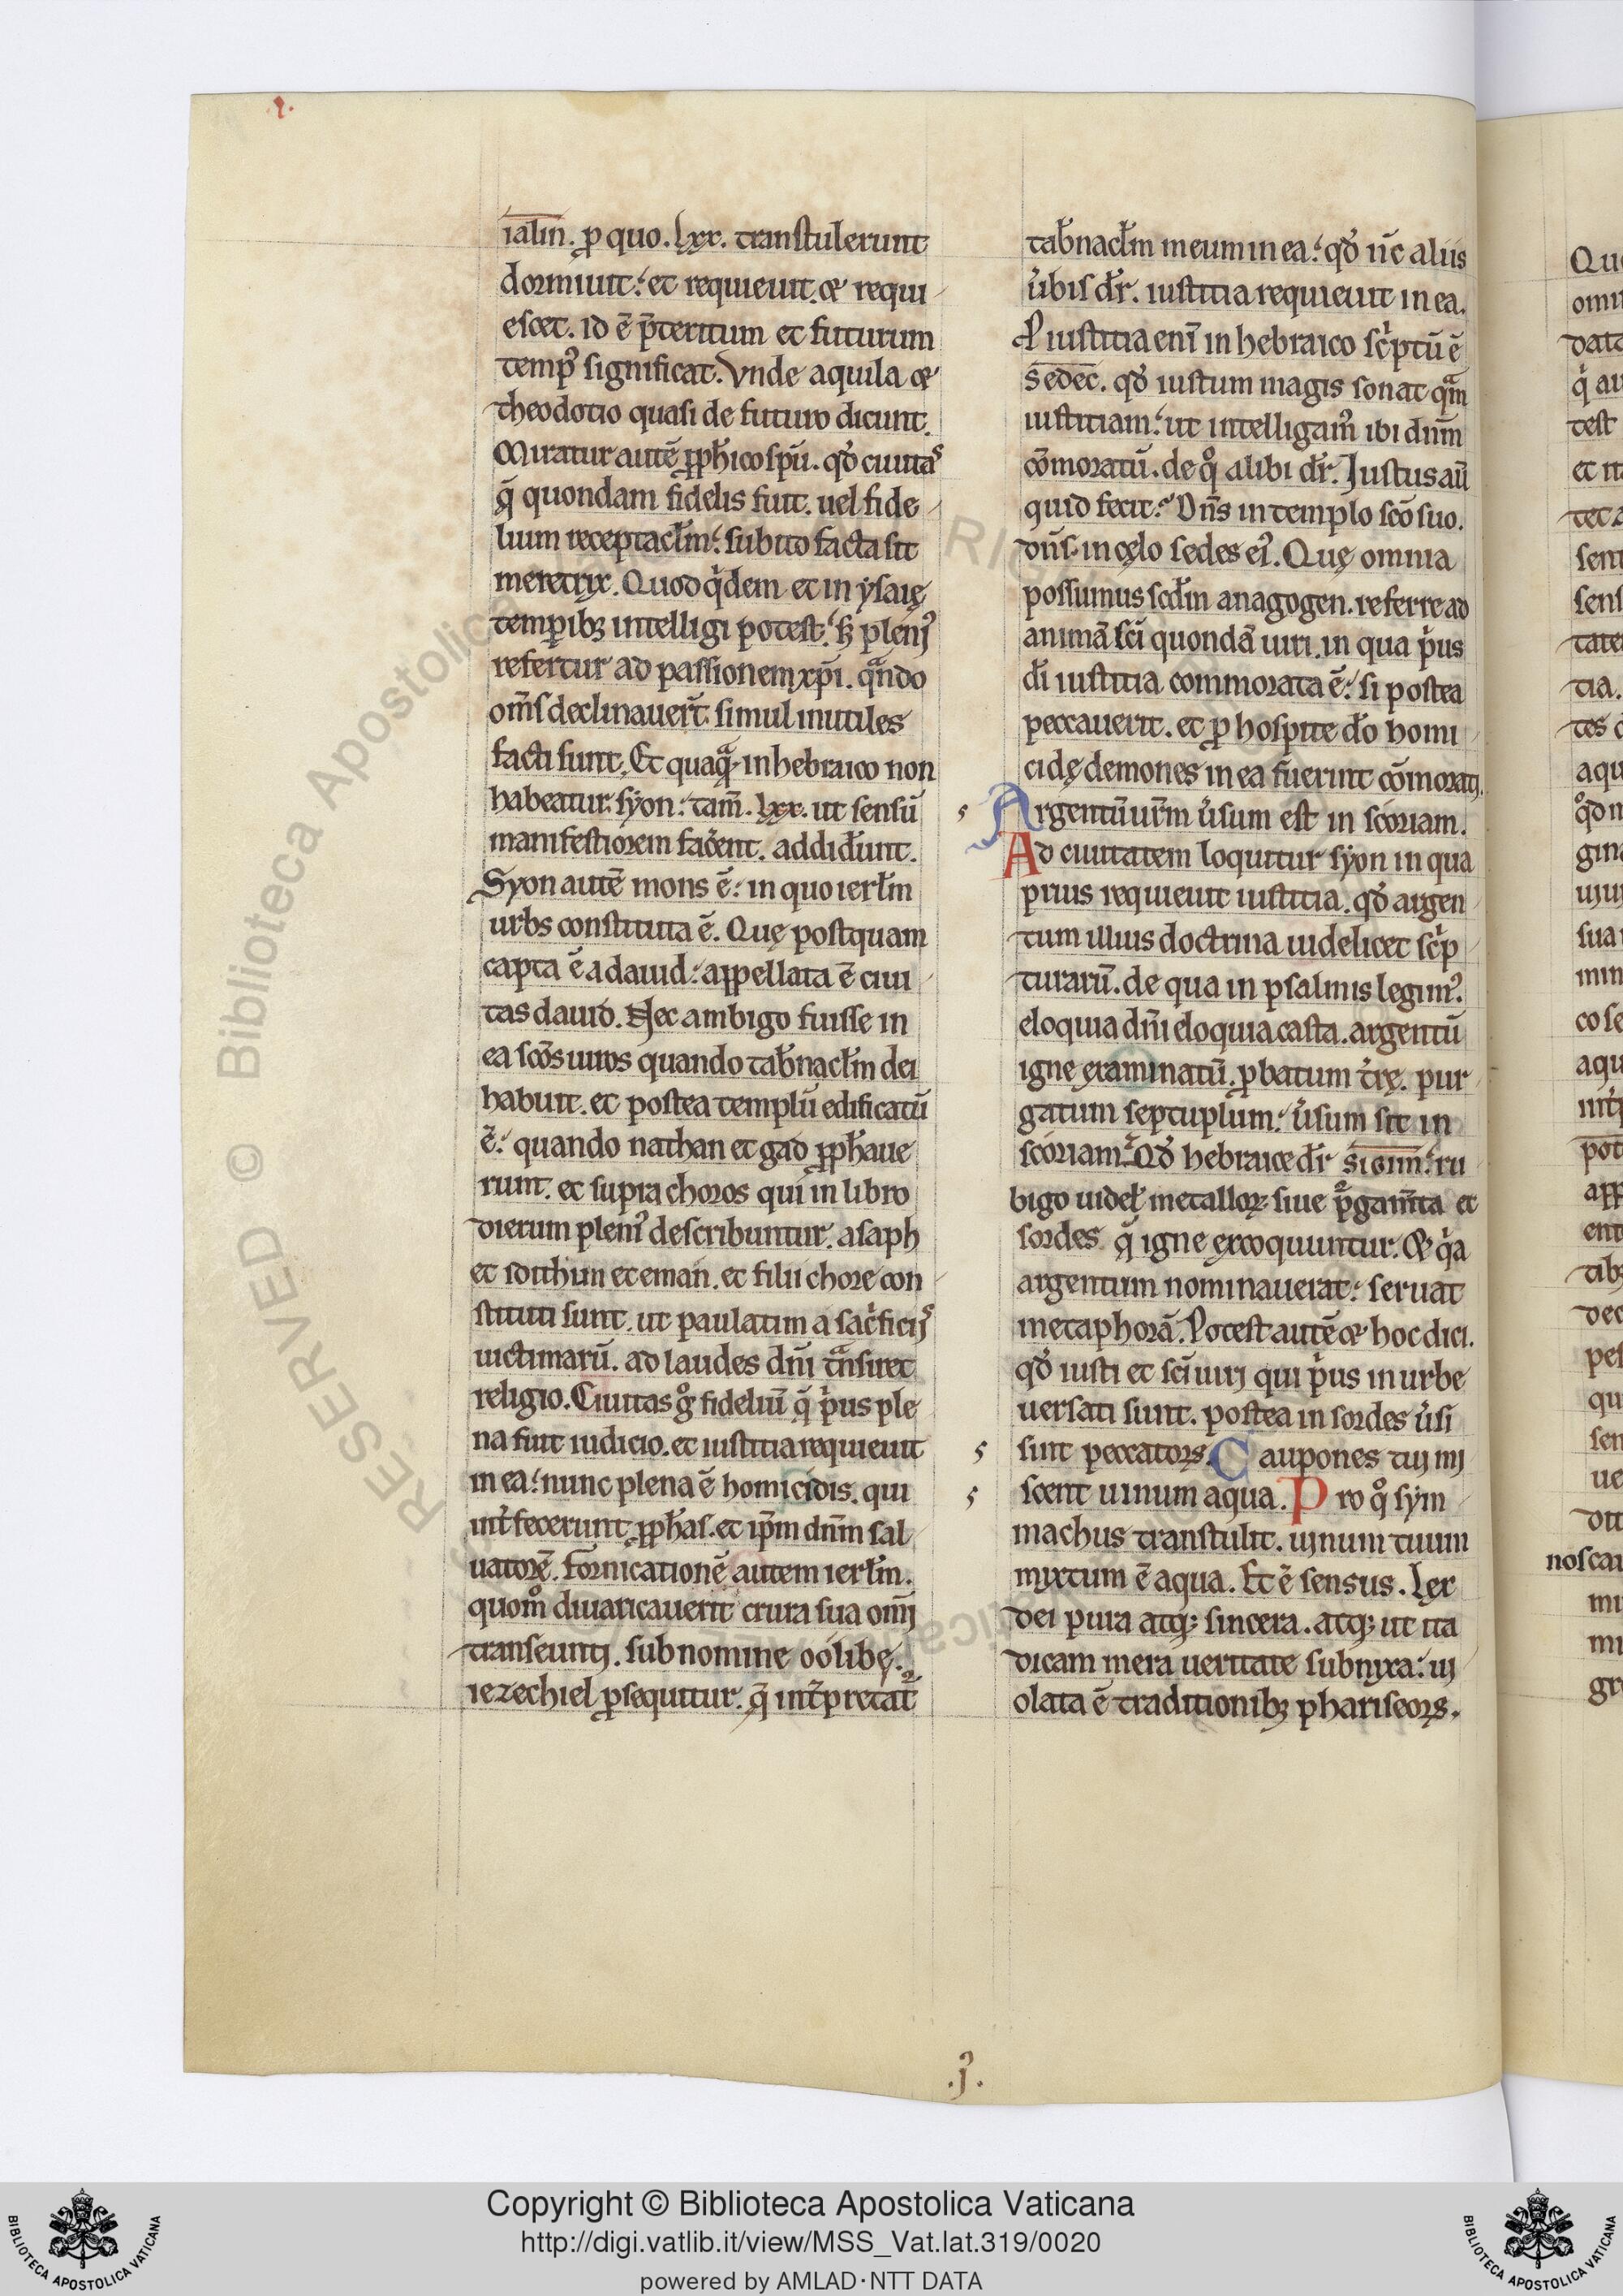 ialin. ꝓ quo. lxx. transtulerunt
dormiuit. et requieuit. et requi
escet. id ē p̄teritum et futurum
temp᷒ significat. Vnde aquila et
theodotio quasi de futuro dicunt.
Miratur autē ꝓph̄ico sp̄u. qd̓ ciuitas
q̄ quondam fidelis fuit. uel fide
lium receptacl̄m. subito facta sit
meretrix. Quod qͥdem et in ysaię
temꝑibꝫ intelligi potest. sꝫ pleni᷒
refertur ad passionem xp̄i. qᷓndo
om̄s declinauer̄t. simul inutiles
facti sunt. Et quaqᷓ in hebraico non
habeatur syon. tam̄. lxx. ut sensū
manifestiorem fac̓ent. addider̄unt.
Syon autē mons ē. in quo ierl̄m
urbs constituta ē. Quę postquam
capta ē a dauid. appellata ē ciui
tas dauid. Nec ambigo fuisse in
ea sc̄os uiros quando tab̓nacl̄m dei
habuit. et postea templū edificatū
ē. quando nathan et gad ꝓph̄aue
runt. et supra choros qui in libro
dierum pleni᷒ describuntur. asaph
et idithun et eman. et filii chore con
stituti sunt. ut paulatim a sac̓ficijs
uictimarū. ad laudes dn̄i tᷓnsiret
religio. Ciuitas gͦ fideliū q̄ pͥus ple
na fuit iudicio. et iustitia requieuit
in ea. nunc plena ē homicidis. qui
int̓fecerunt ꝓph̄as. et ip̄m dn̄m sal
uatorē. Fornicationē autem ierl̄m.
quom̊ diuaricauerit crura sua omī
transeunti. sub nomine oolibę.
iezechiel ꝓsequitur. q̄ int̓pretat᷑
tab̓nacl̄m meum in ea. qd̓ nc̄ aliis
u̓bis dr̄. iustitia requieuit in ea.
P iustitia enī in hebraico scͥptū ē
sedec. qd̓ iustum magis sonat qᷓm
iustitiam. ut intelligam᷒ ibi dn̄m
cōmoratū. de qͦ alibi dr̄. Iustus aū
quid fecit. Dn̄s in templo sc̄o suo.
dn̄s in cęlo sedes ei᷒. Quę omnia
possumus scd̄m anagogen. referre ad
animā sc̄i quondā uiri. in qua pͥus
dī iustitia commorata ē. si postea
peccauerit. et ꝓ hospite dō homi
cidę demones in ea fuerint cōmorati.
Argentū ur̄m u̓sum est in scoriam.
Ad ciuitatem loquitur syon in qua
prius requieuit iustitia. qd̓ argen
tum illius doctrina uidelicet scͥp
turarū. de qua in psalmis legim᷒.
eloquia dn̄i eloquia casta. argentū
igne examinatū. ꝓbatum t̓rę. pur
gatum septuplum. u̓sum sit in
scoriam. Qd̓ hebraice dr̄ sigim. ru
bigo uidel̄ metalloꝝ siue pᷓgam̄ta et
sordes q̄ igne excoquuntur. Et qͥa
argentum nominauerat. seruat
metaphorā. Potest autē et hoc dici.
qd̓ iusti et sc̄i uirj qui pͥus in urbe
uersati sunt. postea in sordes u̓si
sint peccatoꝝ. Caupones tuj mi
scent uinum aqua. Pro qͦ sym
machus transtulit. uinum tuum
mixtum ē aqua. Et ē sensus. Lex
dei pura atqꝫ sincera. atqꝫ ut ita
dicam mera ueritate subnixa. ui
olata ē traditionibꝫ phariseoꝝ.
.j.
RESERVED © Biblioteca Apostolica
Copyright © Biblioteca Apostolica Vaticana
http://digi.vatlib.it/view/MSS_Vat.lat.319/0020
powered by AMLAD·NTT DATA
BIBLIOTECA APOSTOLICA VATICANA
BIBLIOTECA APOSTOLICA VATICANA